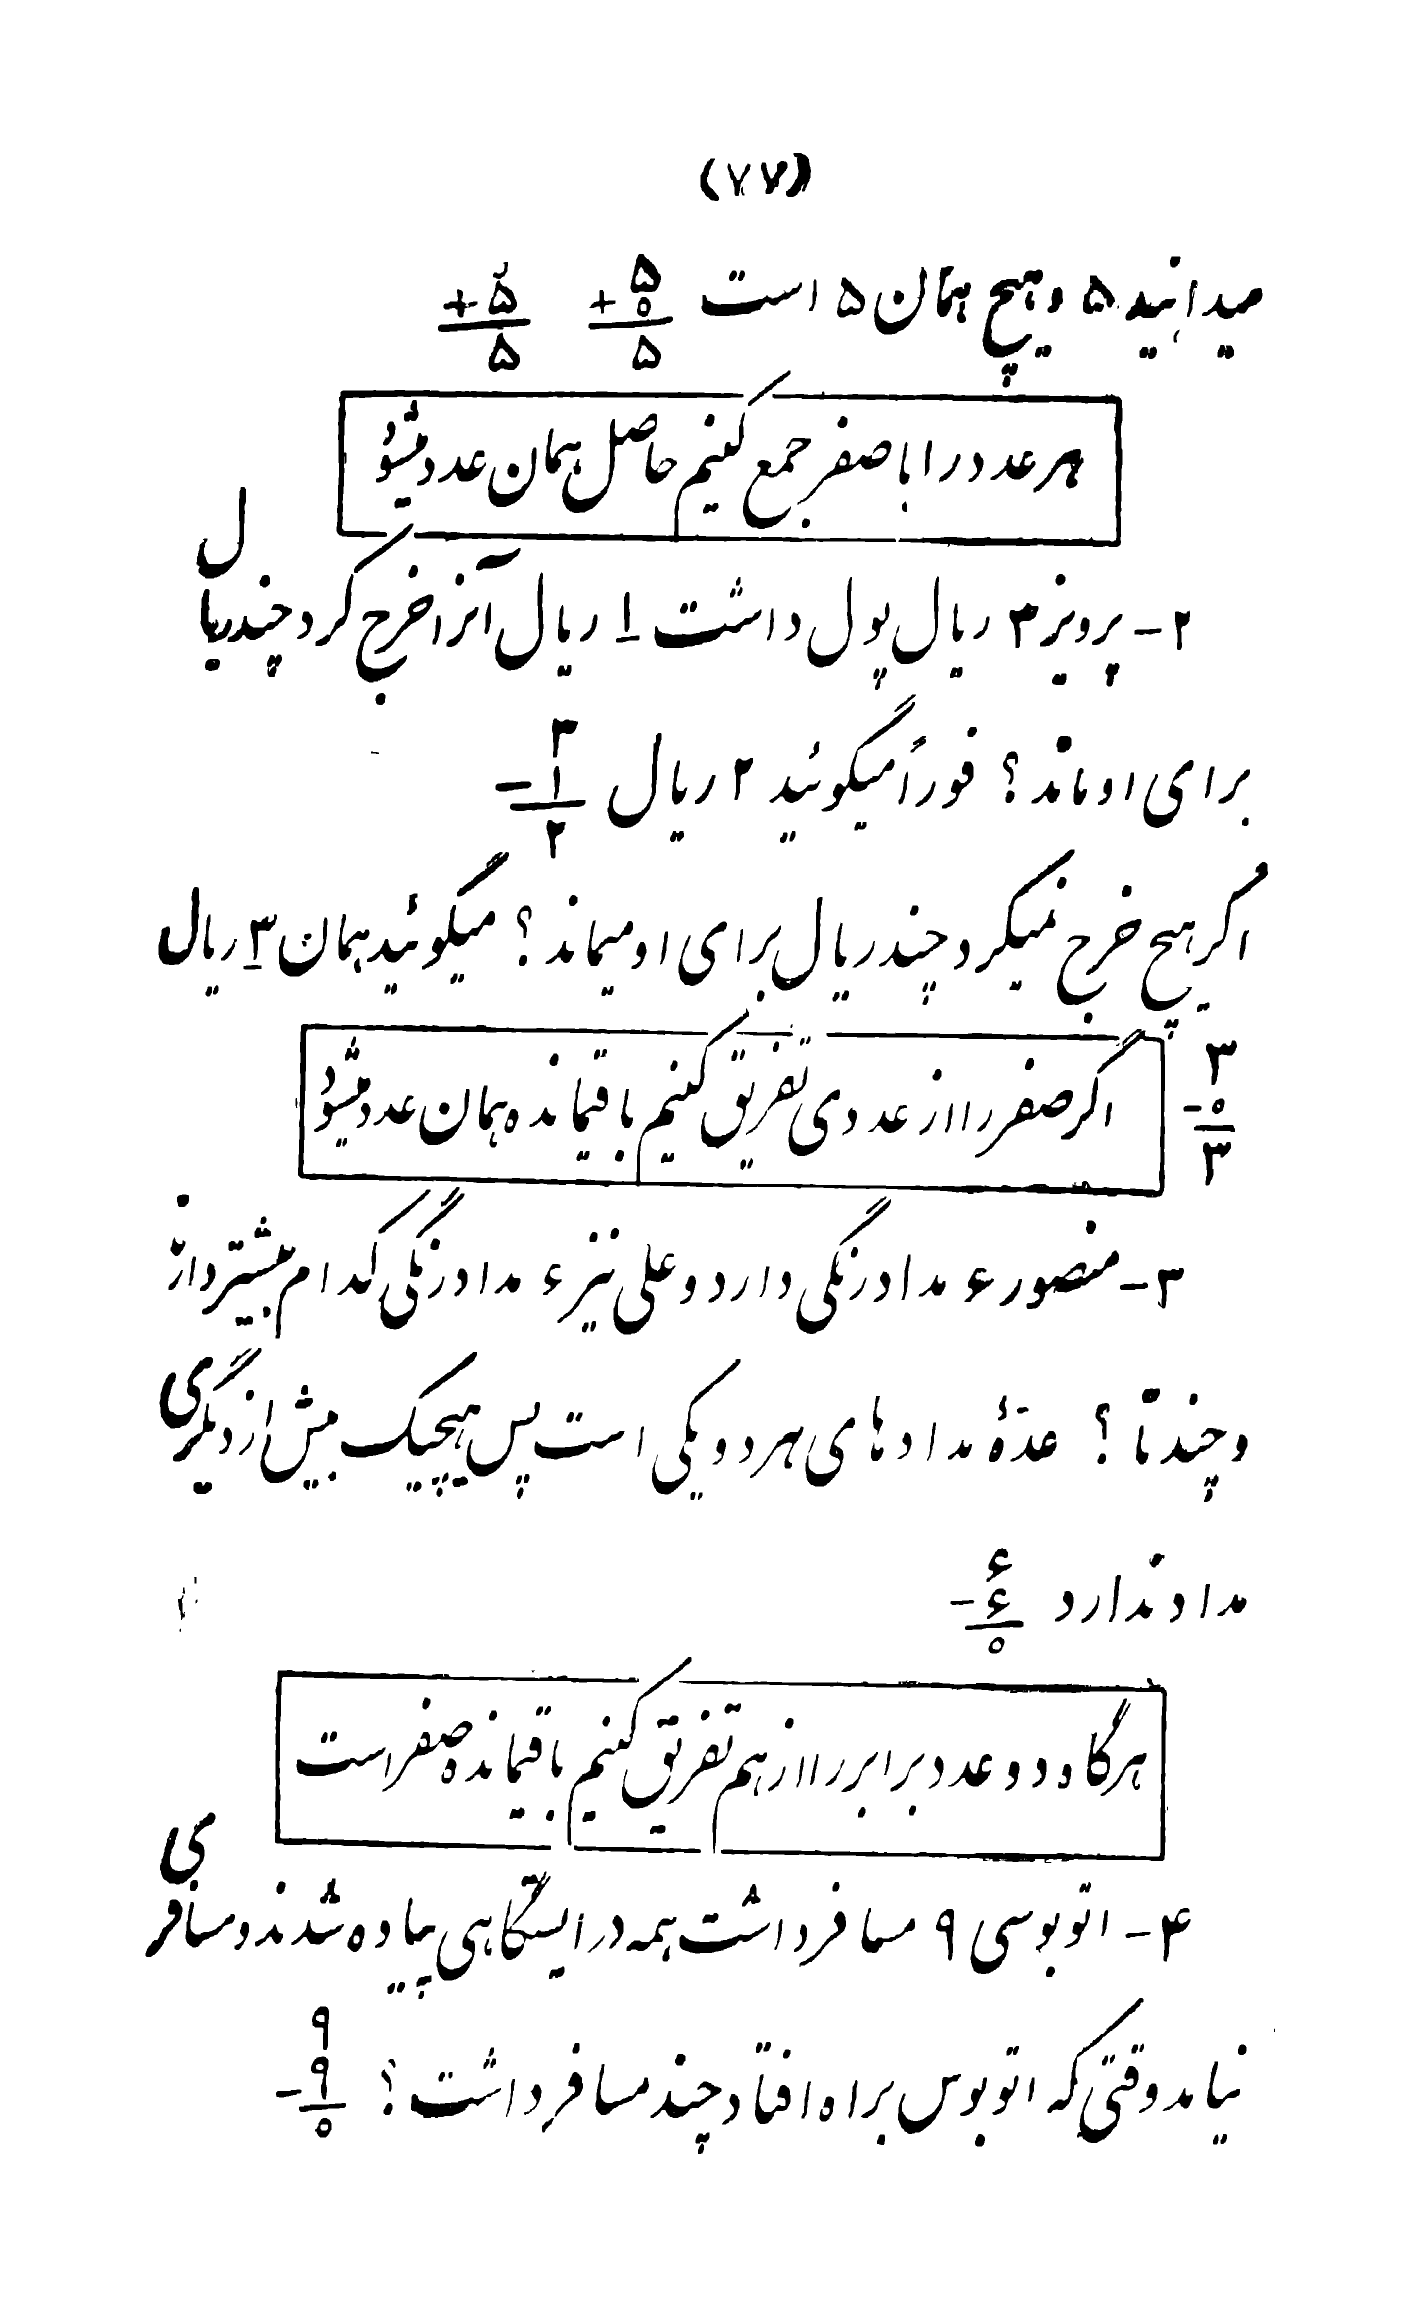 (۷۷)
میدانید ۵ و هیچ همان ۵ است ۵ + ۰ = ۵ ۰ + ۵ = ۵
هر عدد را با صفر جمع کنیم حاصل همان عدد میشود
۲- پرویز ۳ ریال پول داشت ۱ ریال آنرا خرج کرد چند ریال
برای او ماند؟ فوراً میگوئید ۲ ریال ۳ - ۱ = ۲
اگر هیچ خرج نمیکرد چند ریال برای او میماند؟ میگوئید همان ۳ ریال
۳ - ۰ = ۳
اگر صفر را از عددی تفریق کنیم باقیمانده همان عدد میشود
۳- منصور ۶ مداد رنگی دارد و علی نیز ۶ مداد رنگی کدام بیشتر دارند
و چند تا؟ عدّهٔ مدادهای هر دو یکی است پس هیچیک بیش از دیگری
مداد ندارد ۶ - ۶ = ۰
هرگاه دو عدد برابر را از هم تفریق کنیم باقیمانده صفر است
۴- اتوبوسی ۹ مسافر داشت همه در ایستگاهی پیاده شدند و مسافری
نیامد وقتی که اتوبوس براه افتاد چند مسافر داشت؟ ۹ - ۹ = ۰